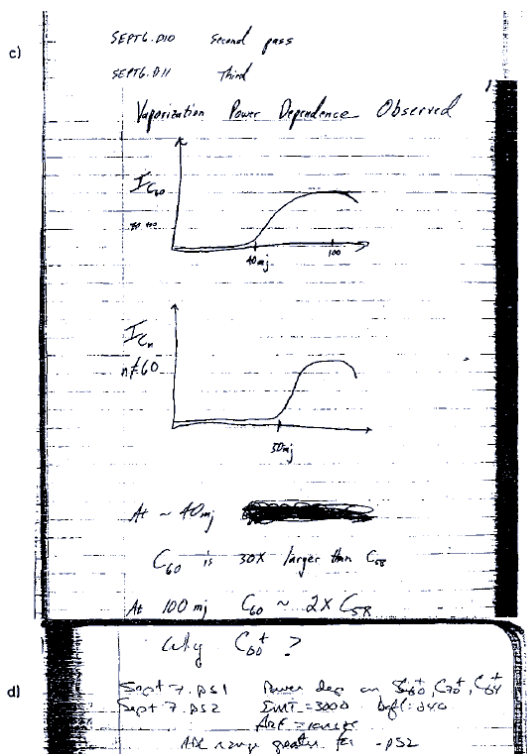 c)
SEPT6.D10 Second pass
SEPT6.D11 Third
Vaporization Power Dependence Observed
I C60
40 mj. 100
I Cn
n≠60
50 mj
At ~ 40 mj
C60 is 30X larger than C58
At 100 mj C60 ~ 2X C58
Why C60+ ?
d)
Sept 7. PS1 Power dep on C60+, C70+, C64+
Sept 7. PS2 EMT=3000 Defl: 240
range greater for PS2